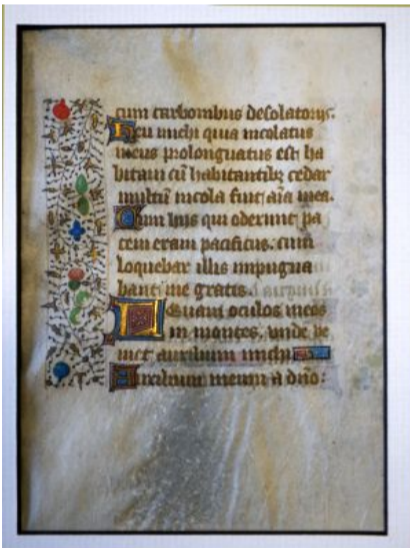 cum carbonibus desolatorijs.
Heu michi quia incolatus
meus prolonguatus est ha
bitaui cū habitantibꝫ cedar
multū incola fuit aīa mea.
Cum hijs qui oderunt pa
cem eram pacificus. cum
loquebar illis impugna
bant me gratis.
Leuaui oculos meos
in montes. unde ve
niet auxilium michi.
Auxilium meum a dño: